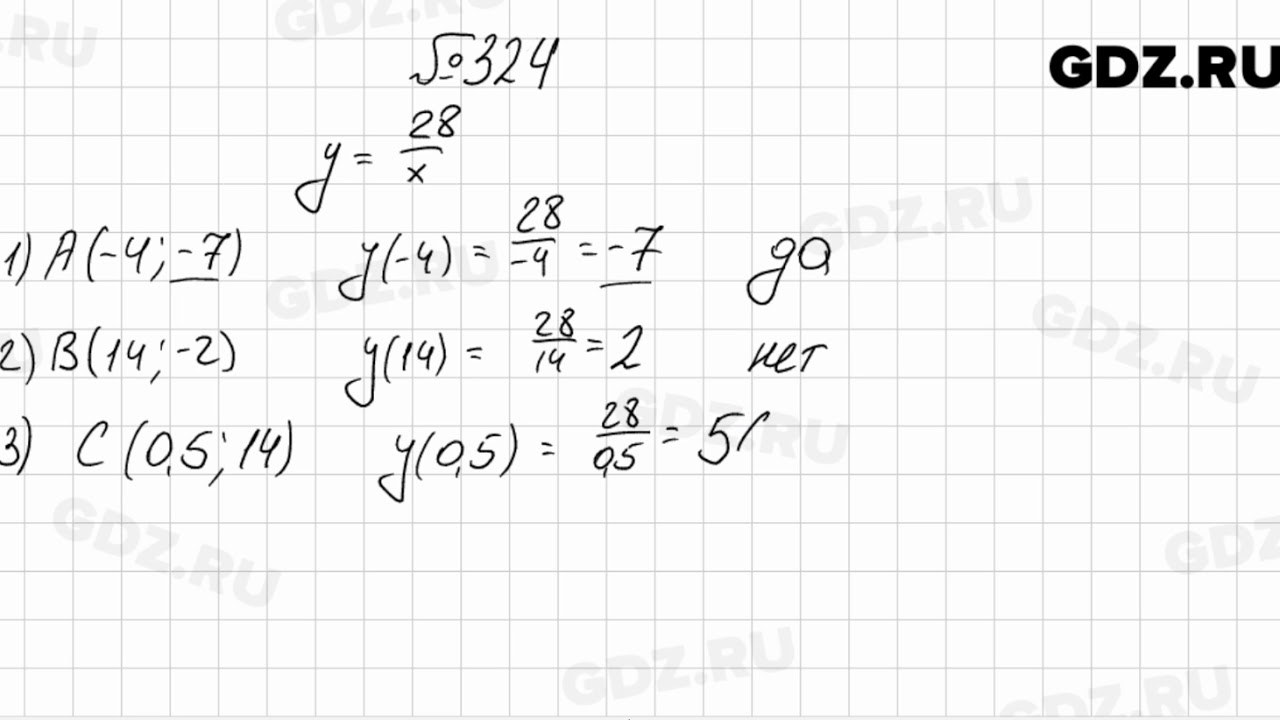 GDZ.RU
№324
y = 28/x
1) A(-4; -7) y(-4) = 28/-4 = -7 да
2) B(14; -2) y(14) = 28/14 = 2 нет
3) C(0,5; 14) y(0,5) = 28/0,5 = 5